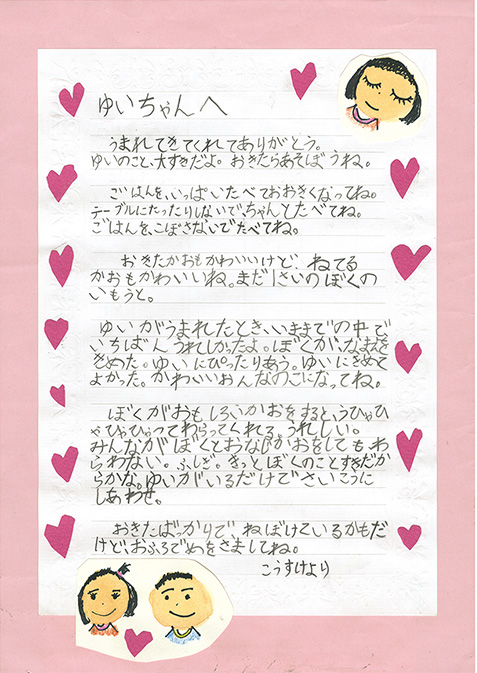 ゆいちゃんへ
うまれてきてくれてありがとう。
ゆいのこと、大すきだよ。おきたらあそぼうね。
ごはんを、いっぱいたべておおきくなってね。
テーブルにたったりしないで、ちゃんとたべてね。
ごはんを、こぼさないでたべてね。
おきたかおもかわいいけど、ねてる
かおもかわいいね。まだ1さいのぼくの
いもうと。
ゆいがうまれたとき、いままでの中で
いちばんうれしかったよ。ぼくが、なまえを
きめた。ゆいにぴったりあう。ゆいにきめて
よかった。かわいいおんなのこになってね。
ぼくがおもしろいかおをすると、うひゃひゃ
ひゃひゃってわらってくれる。うれしい。
みんながぼくとおなじかおをしてもわ
らわない。ふしぎ。きっとぼくのことすきだか
らかな。ゆいがいるだけでさいこうに
しあわせ。
おきたばっかりでねぼけているかもだ
けど、おふろでめをさましてね。
こうすけより